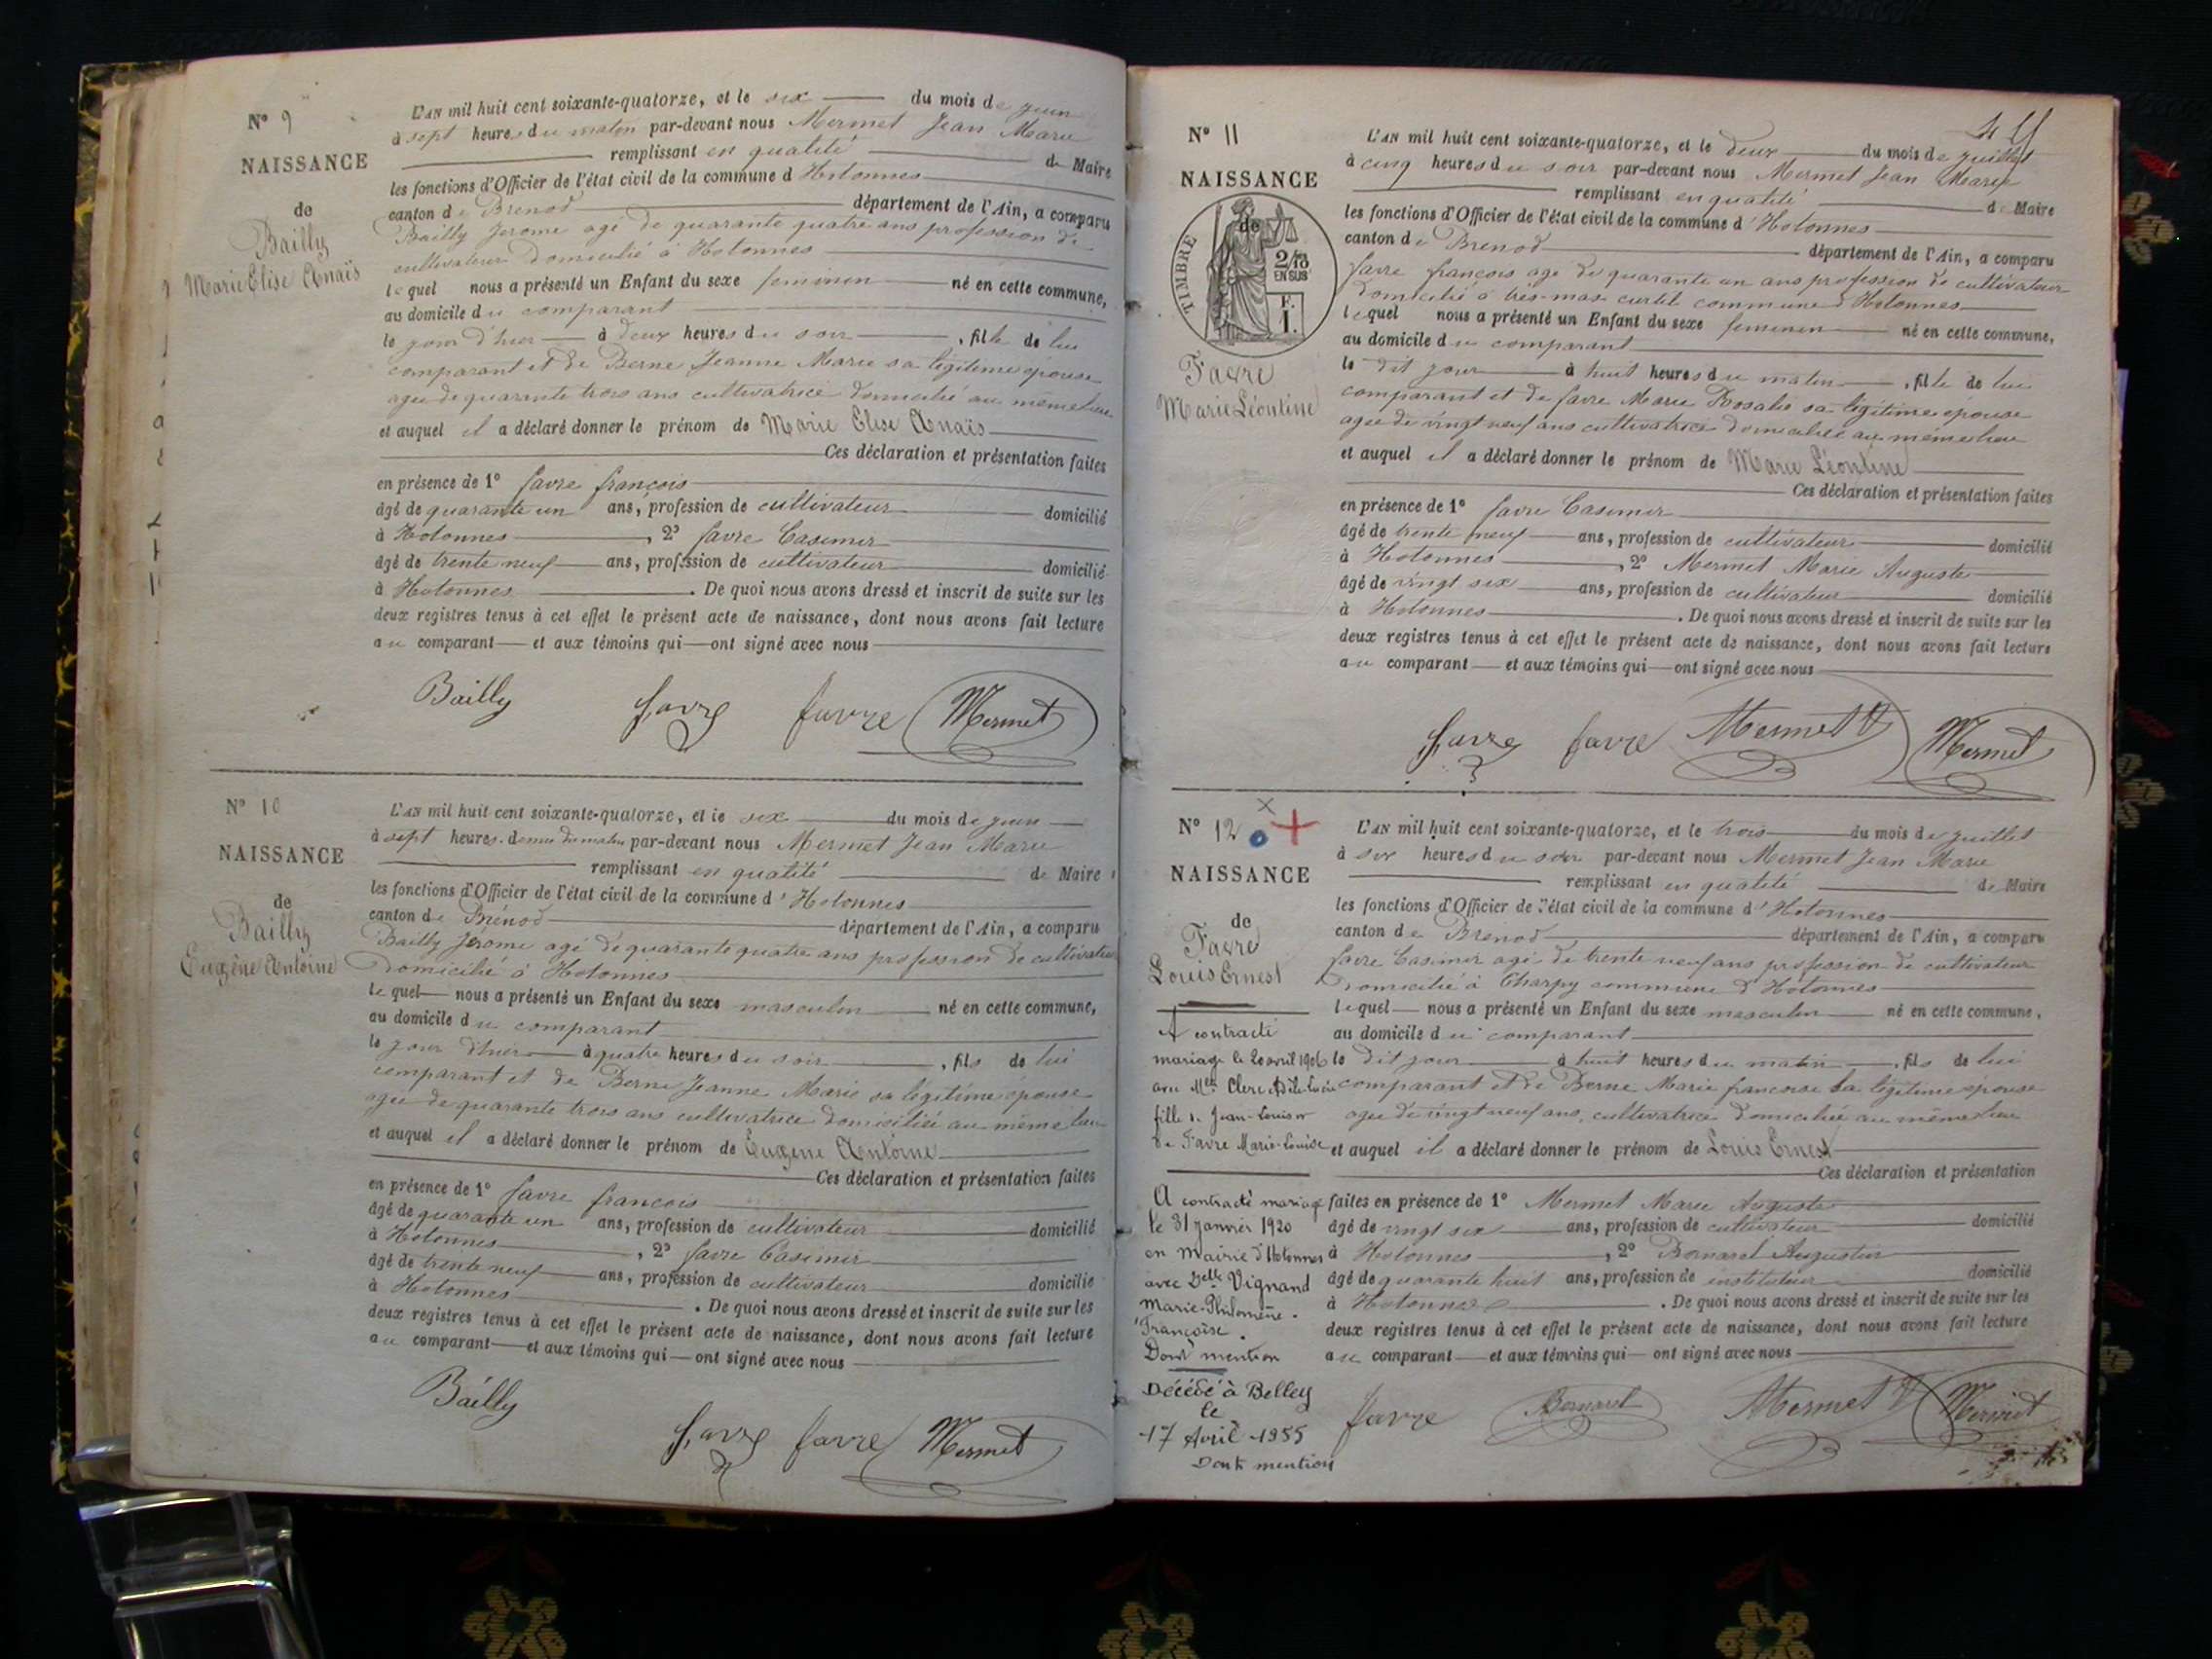 N° 9
NAISSANCE
de
Bailly
Marie Elise Anaïs
L'AN mil huit cent soixante-quatorze, et le six du mois de juin
à sept heures du matin par-devant nous Mermet Jean Marie
remplissant en qualité de Maire
les fonctions d'Officier de l'état civil de la commune d Hotonnes
canton de Brenod département de l'Ain, a comparu
Bailly Jerome agé de quarante quatre ans profession de
cultivateur domicilié à Hotonnes
lequel nous a présenté un Enfant du sexe feminin né en cette commune,
au domicile du comparant
le jour d'hier à deux heures du soir, fille de lui
comparant et de Berne Jeanne Marie sa légitime épouse
agee de quarante trois ans cultivatrice domicilié au même lieu
et auquel il a déclaré donner le prénom de Marie Elise Anaïs
Ces déclaration et présentation faites
en présence de 1° favre françois
âgé de quarante un ans, profession de cultivateur domicilié
à Hotonnes, 2° favre Casimir
âgé de trente neuf ans, profession de cultivateur domicilié
à Hotonnes. De quoi nous avons dressé et inscrit de suite sur les
deux registres tenus à cet effet le présent acte de naissance, dont nous avons fait lecture
au comparant et aux témoins qui ont signé avec nous
Bailly favre favre Mermet
N° 10
NAISSANCE
de
Bailly
Eugène Antoine
L'AN mil huit cent soixante-quatorze, et le six du mois de juin
à sept heures demie du matin par-devant nous Mermet Jean Marie
remplissant en qualité de Maire
les fonctions d'Officier de l'état civil de la commune d'Hotonnes
canton de Brénod département de l'Ain, a comparu
Bailly Jérome agé de quarante quatre ans profession de cultivateur
domicilié à Hotonnes
lequel nous a présenté un Enfant du sexe masculin né en cette commune,
au domicile du comparant
le jour d'hier à quatre heures du soir, fils de lui
comparant et de Berne Jeanne Marie sa légitime épouse
agee de quarante trois ans cultivatrice domiciliée au même lieu
et auquel il a déclaré donner le prénom de Eugène Antoine
Ces déclaration et présentation faites
en présence de 1° favre francois
âgé de quarante un ans, profession de cultivateur domicilié
à Hotonnes, 2° favre Casimir
âgé de trente neuf ans, profession de cultivateur domicilié
à Hotonnes. De quoi nous avons dressé et inscrit de suite sur les
deux registres tenus à cet effet le présent acte de naissance, dont nous avons fait lecture
au comparant et aux témoins qui ont signé avec nous
Bailly favre favre Mermet
N° 11
NAISSANCE
de
TIMBRE
2/10
EN SUS
F.
1.
Favre
Marie Léontine
L'AN mil huit cent soixante-quatorze, et le deux du mois de juillet
à cinq heures du soir par-devant nous Mermet Jean Marie
remplissant en qualité de Maire
les fonctions d'Officier de l'état civil de la commune d'Hotonnes
canton de Brenod département de l'Ain, a comparu
favre françois agé de quarante un ans profession de cultivateur
domicilié à commune d'Hotonnes
lequel nous a présenté un Enfant du sexe feminin né en cette commune,
au domicile du comparant
le dit jour à huit heures du matin, fille de lui
comparant et de favre Marie Rosalie sa légitime épouse
agee de vingt neuf ans cultivatrice domiciliée au même lieu
et auquel il a déclaré donner le prénom de Marie Léontine
Ces déclaration et présentation faites
en présence de 1° favre Casimir
âgé de trente neuf ans, profession de cultivateur domicilié
à Hotonnes, 2° Mermet Marie Auguste
âgé de vingt six ans, profession de cultivateur domicilié
à Hotonnes. De quoi nous avons dressé et inscrit de suite sur les
deux registres tenus à cet effet le présent acte de naissance, dont nous avons fait lecture
au comparant et aux témoins qui ont signé avec nous
favre favre Mermet Mermet
N° 12
NAISSANCE
de
Favre
Louis Ernest
A contracté
mariage le 20 avril 1906
avec Melle Clerc
fille de Jean-Louis et
de Favre Marie-Louise
A contracté mariage
le 31 janvier 1920
en Mairie d'Hotonnes
avec Delle Vignand
Marie-Philomène-
Françoise.
Dont mention
Décédé à Belley
le
17 Avril 1955
Dont mention
L'AN mil huit cent soixante-quatorze, et le trois du mois de juillet
à six heures du soir par-devant nous Mermet Jean Marie
remplissant en qualité de Maire
les fonctions d'Officier de l'état civil de la commune d'Hotonnes
canton de Brenod département de l'Ain, a comparu
favre Casimir agé de trente neuf ans profession de cultivateur
domicilié à Charpy commune d'Hotonnes
lequel nous a présenté un Enfant du sexe masculin né en cette commune,
au domicile du comparant
le dit jour à huit heures du matin, fils de lui
comparant et de Berne Marie francoise sa légitime épouse
agee de vingt neuf ans, cultivatrice domiciliée au même lieu
et auquel il a déclaré donner le prénom de Louis Ernest
Ces déclaration et présentation
faites en présence de 1° Mermet Marie Auguste
âgé de vingt six ans, profession de cultivateur domicilié
à Hotonnes, 2° Bornarel Augustin
âgé de quarante huit ans, profession de instituteur domicilié
à Hotonnes. De quoi nous avons dressé et inscrit de suite sur les
deux registres tenus à cet effet le présent acte de naissance, dont nous avons fait lecture
au comparant et aux témoins qui ont signé avec nous
favre Bornarel Mermet Mermet